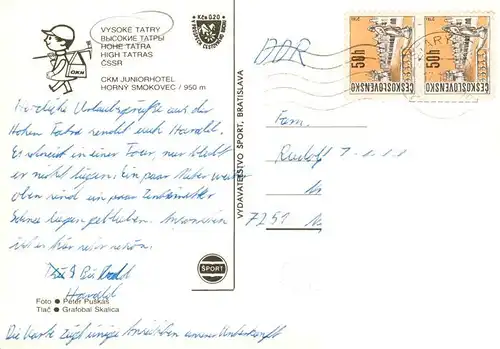 VYSOKÉ TATRY
ВЫСОКИЕ ТАТРЫ
HOHE TATRA
HIGH TATRAS
ČSSR
CKM JUNIORHOTEL
HORNÝ SMOKOVEC / 950 m
CKM
Kčs 0,20
Herzliche Urlaubsgrüße aus der
Hohen Tatra sendet euch Harald.
Es schneit in einer Tour, nur bleibt
er nicht liegen. Ein paar Meter weiter
oben sind ein paar Zentimeter
Schnee liegen geblieben. Ansonsten
ist es hier sehr schön.
Bis bald
Harald
Foto ● Peter Puskáš
Tlač ● Grafobal Skalica
Die Karte zeigt einige Ansichten unserer Unterkunft
VYDAVATEĽSTVO ŠPORT, BRATISLAVA
ŠPORT
DDR
50h
ČESKOSLOVENSKO
50h
ČESKOSLOVENSKO
Fam.
Rudolf
7251